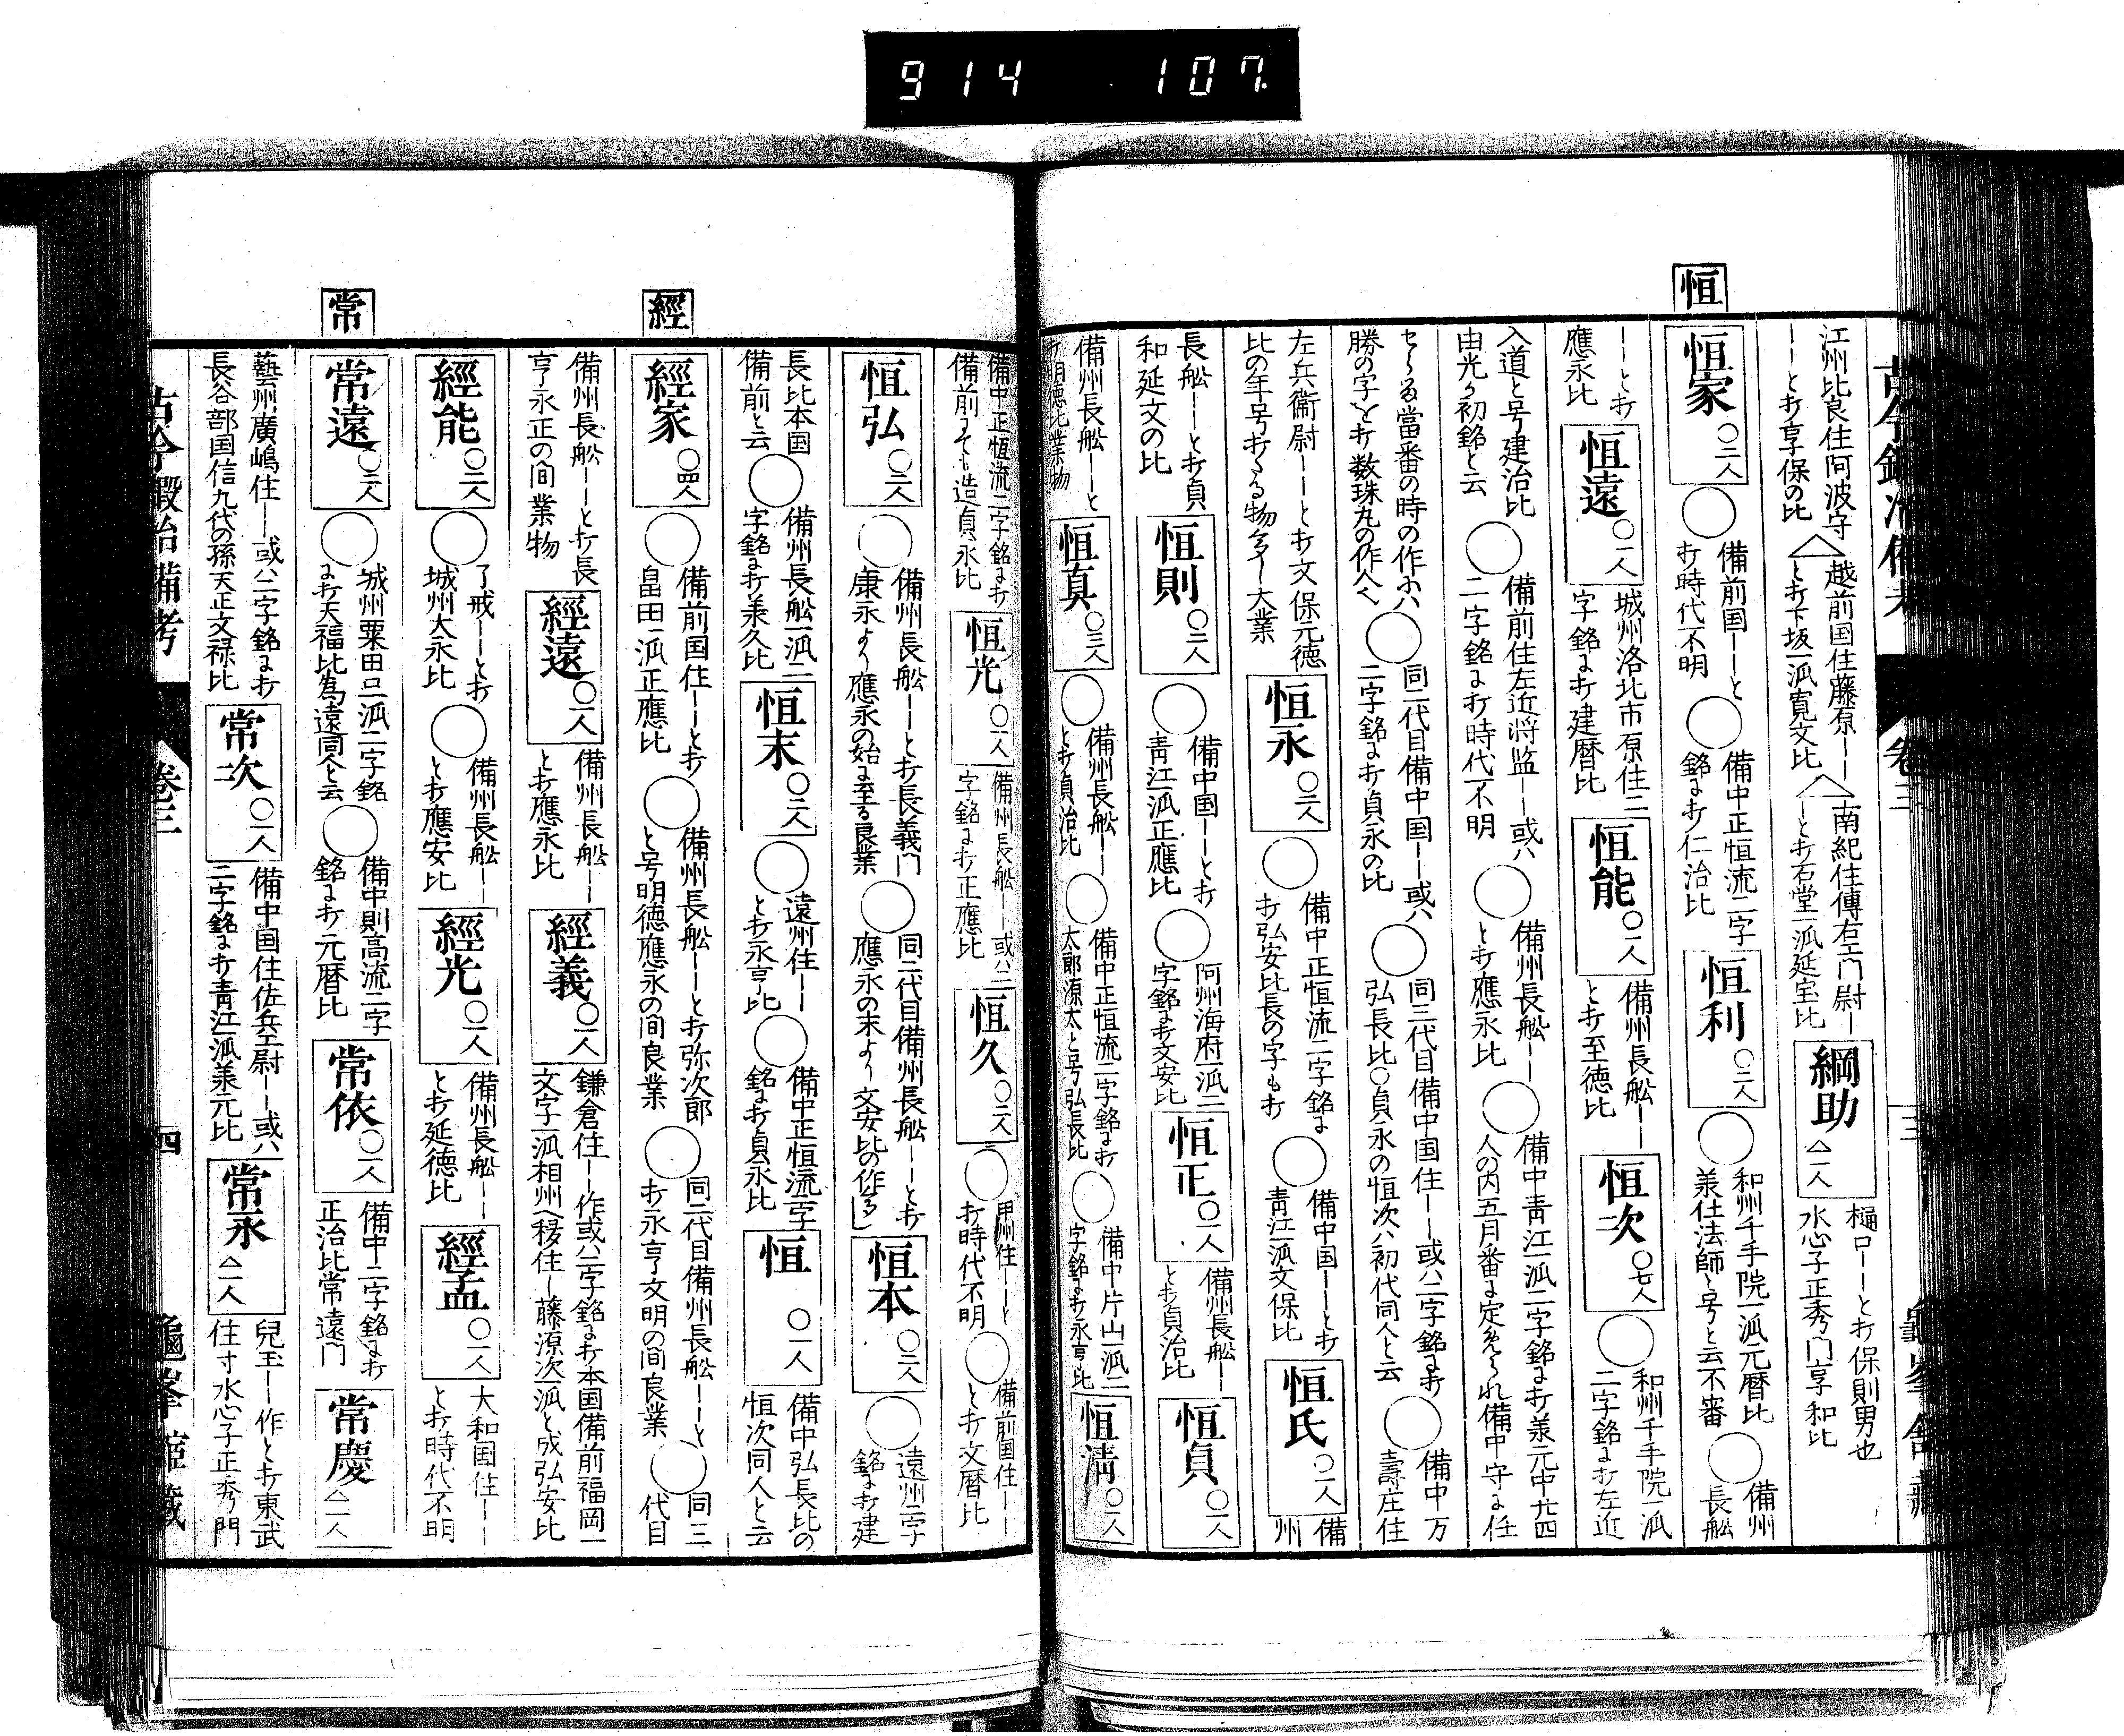 914 107
恒
江州比良住阿波守
――と打享保の比
越前国住藤原――
と打下坂一派寛文比
南紀住傳右エ門尉―
―と打石堂一派延宝比
綱助 △一人
樋口――と打保則男也
水心子正秀門享和比
恒家 〇二人
備前国――と
打時代不明
備中正恒流二字
銘に打仁治比
恒利 〇二人
和州千手院一派元暦比
兼仕法師と号と云不審
備州
長舩
――と打
應永比
恒遠 〇一人
城州洛北市原住二
字銘に打建暦比
恒能 〇一人
備州長舩――
と打至徳比
恒次 〇七人
和州千手院一派
二字銘に打左近
入道と号建治比
由光か初銘と云
備前住左近将監――或ハ
二字銘に打時代不明
備州長舩――
と打應永比
備中青江一派二字銘に打兼元中廾四
人の内五月番に定められ備中守に任
せらる當番の時の作にハ
勝の字を打数珠丸の作人也
同二代目備中国――或ハ
二字銘に打貞永の比
同三代目備中国住――或ハ二字銘に打
弘長比〇貞永の恒次ハ初代同人と云
備中万
壽庄住
左兵衞尉――と打文保元德
比の年号打たる物多し大業
恒永 〇二人
備中正恒流二字銘に
打弘安比長の字も打
備中国――と打
青江一派文保比
恒氏 〇一人
備
州
長舩――と打貞
和延文の比
恒則 〇二人
備中国――と打
青江一派正應比
阿州海府一派二
字銘に打文安比
恒正 〇一人
備州長舩――
と打貞治比
恒貞 〇一人
備州長舩――と
打明德比業物
恒真 〇三人
備州長舩――
と打貞治比
備中正恒流二字銘に打
太郎源太と号弘長比
備中片山一派二
字銘に打永亨比
恒清 〇一人
備中正恒流二字銘に打
備前にても造貞永比
恒光 〇一人
備州長舩――或ハ二
字銘に打正應比
恒久 〇二人
甲州住――と
打時代不明
備前国住――
と打文暦比
恒弘 〇二人
備州長舩――と打長義門
康永より應永の始に至る良業
同二代目備州長舩――と打
應永の末より文安比の作多し
恒本 〇二人
遠州二字
銘に打建
長比本国
備前と云
備州長舩一派二
字銘に打兼久比
恒末 〇二人
遠州住――
と打永亨比
備中正恒流二字
銘に打貞永比
恒 〇一人
備中弘長比の
恒次同人と云
經
經家 〇四人
備前国住――と打
畠田一派正應比
備州長舩――と打弥次郎
と号明德應永の间良業
同二代目備州長舩――と
打永亨文明の间良業
同三
代目
備州長舩――と打長
亨永正の间業物
經遠 〇一人
備州長舩――
と打應永比
經義 〇一人
鎌倉住――作或ハ二字銘に打本国備前福岡一
文字一派相州へ移住し藤源次一派と成弘安比
經能 〇二人
了戒――と打
城州大永比
備州長舩――
と打應安比
經光 〇一人
備州長舩――
と打延德比
經孟 〇一人
大和国住――
と打時代不明
常
常遠 〇二人
城州粟田口一派二字銘
に打天福比為遠同人と云
備中則高流二字
銘に打元暦比
常依 〇一人
備中二字銘に打
正治比常遠門
常慶 △一人
藝州廣嶋住――或ハ二字銘に打
長谷部国信九代の孫天正文禄比
常次 〇一人
備中国住佐兵エ尉――或ハ
三字銘に打青江派兼元比
常永 △一人
兒玉――作と打東武
住寸水心子正秀門
古今鍛冶備考 卷三 四